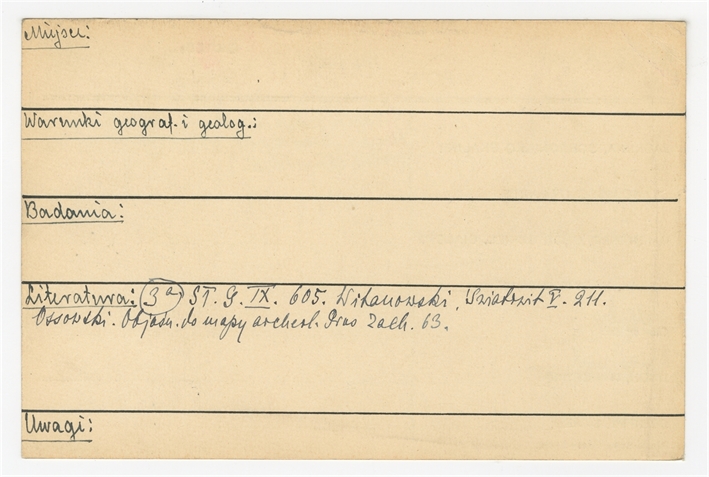 Miejsce:
Warunki geograf. i geolog.:
Badania:
Literatura: 3a) Sł. G. IX. 605. Witanowski, Światowit V. 211.
Ossowski. Objaśn. do mapy archeol. Prus Zach. 63.
Uwagi: